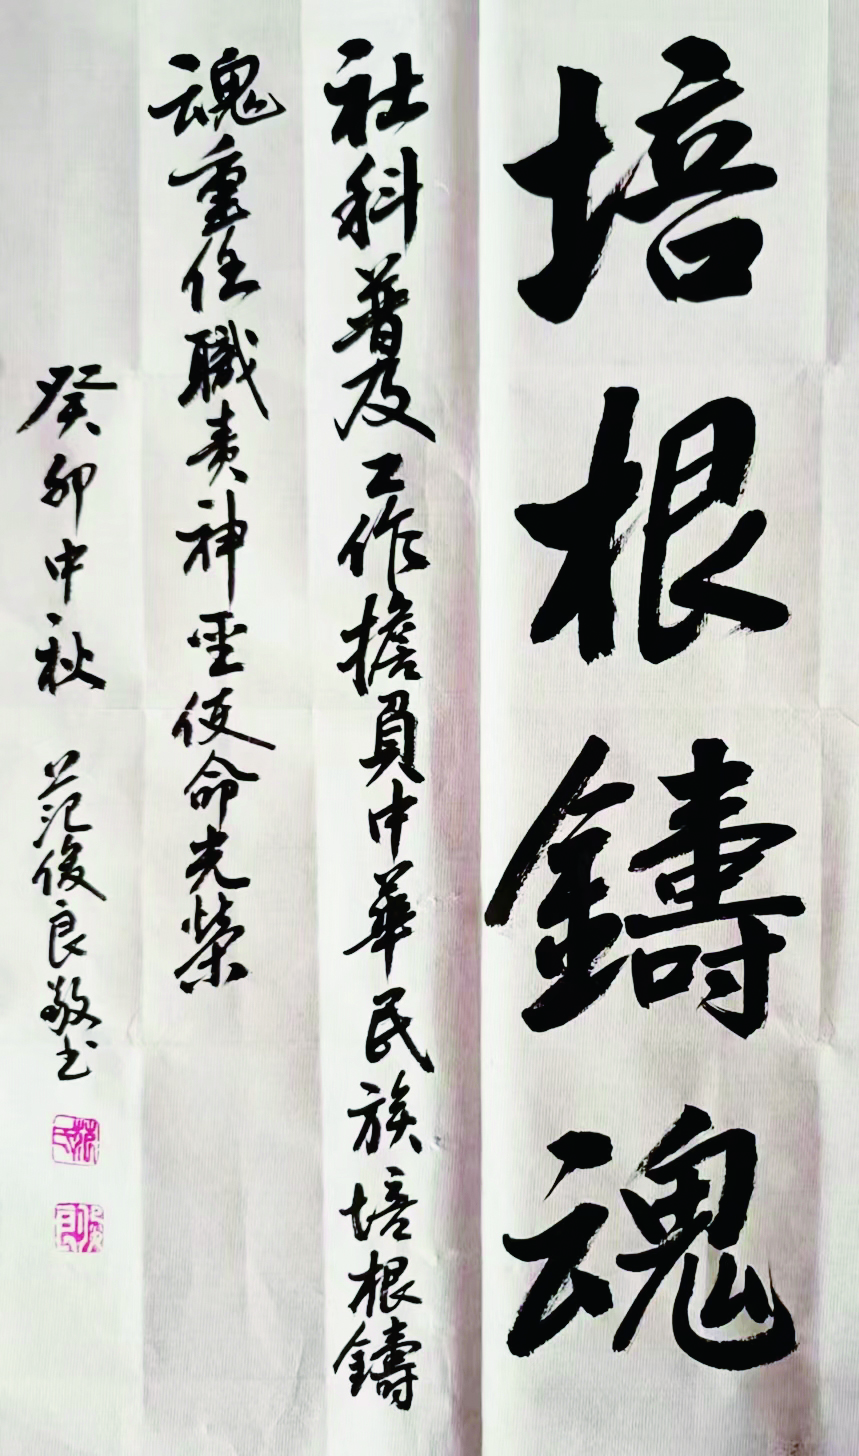 培根鑄魂
社科普及工作擔負中華民族培根鑄
魂重任職责神聖使命光榮
癸卯中秋 范俊良敬书
范氏